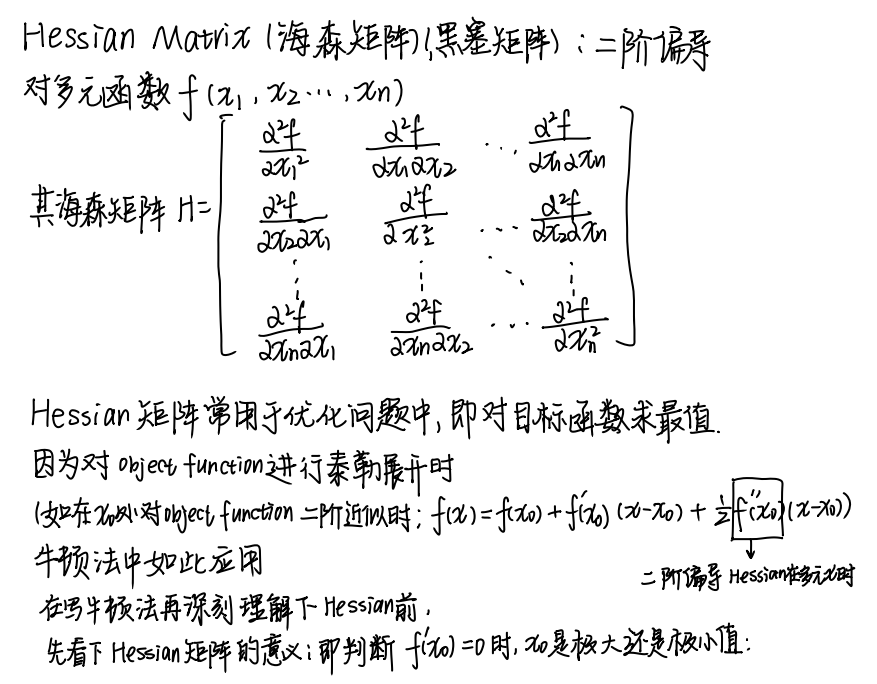 Hessian Matrix (海森矩阵)(黑塞矩阵)：二阶偏导
对多元函数 f(x₁, x₂ …, xn)
其海森矩阵 H=
[ ∂²f/∂x₁² ∂²f/∂x₁∂x₂ … ∂²f/∂x₁∂xn
∂²f/∂x₂∂x₁ ∂²f/∂x₂² … ∂²f/∂x₂∂xn
⋮ ⋮ ⋱ ⋮
∂²f/∂xn∂x₁ ∂²f/∂xn∂x₂ … ∂²f/∂xn² ]
Hessian 矩阵常用于优化问题中, 即对目标函数求最值.
因为对 object function 进行泰勒展开时
(如在x₀处对object function 二阶近似时: f(x) = f(x₀) + f'(x₀) (x-x₀) + ½ f''(x₀) (x-x₀))
二阶偏导 Hessian在多元x时
牛顿法中如此应用
在写牛顿法再深刻理解下Hessian前,
先看下Hessian矩阵的意义: 即判断 f'(x₀)=0 时, x₀是极大还是极小值: